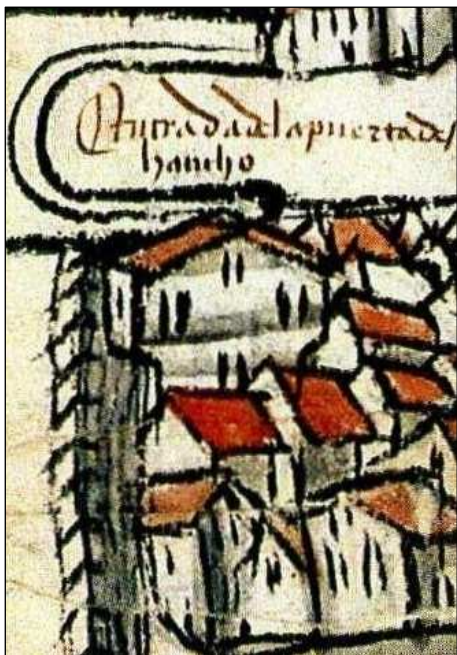 Entrada dela puerta de
hancho